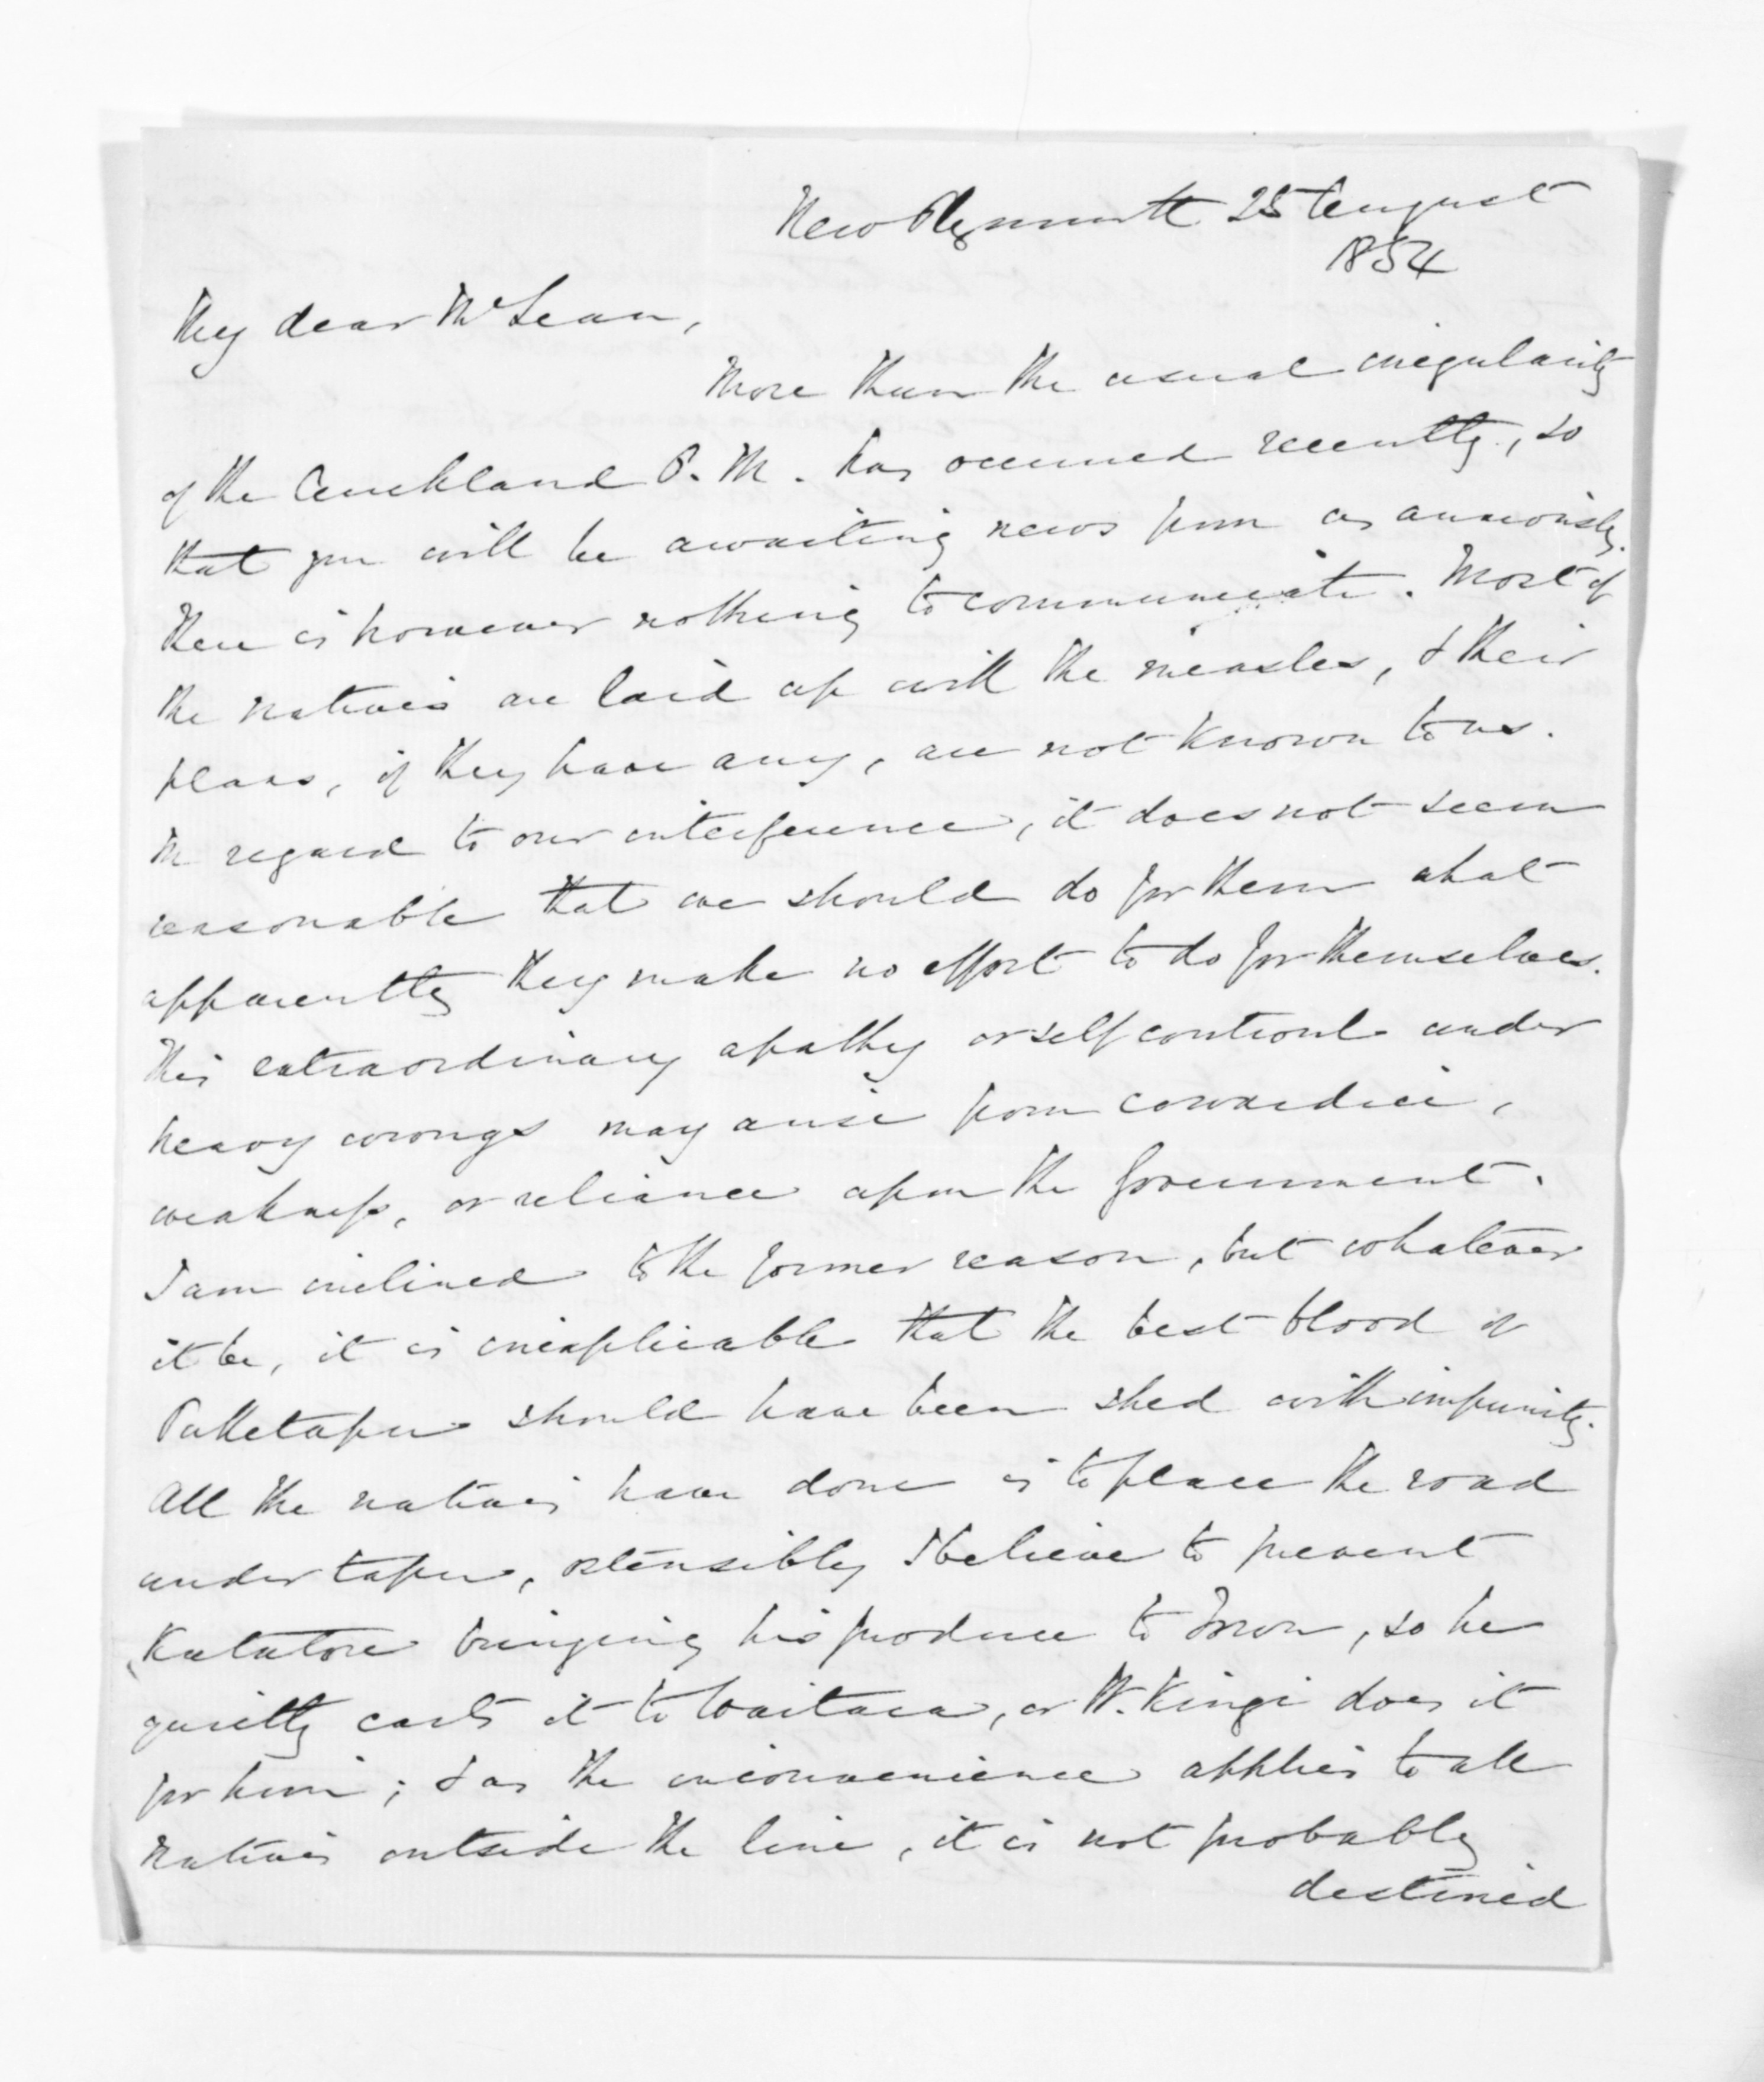 New Plymouth 25 August
1854
My dear McLean,
More than the usual irregularity
of the Auckland P.M. has occurred recently, so
that you will be awaiting news from us anxiously.
There is however nothing to communicate. Most of
the natives are laid up with the measles, & their
plans, if they have any, are not known to us.
In regard to our interference, it does not seem
reasonable that we should do for them what
apparently they make no effort to do for themselves.
This extraordinary apathy or self controul under
heavy wrongs may arise from cowardice,
weakness, or reliance upon the Government.
I am inclined to the former reason, but whatever
it be, it is inexplicable that the best blood of
Puketapu should have been shed with impunity.
All the natives have done is to place the road
under tapu, ostensibly I believe to prevent
Katatore bringing his produce to Town, so he
quietly carts it to Waitara, or W. Kingi does it
for him; & as the inconvenience applies to all
natives outside the line, it is not probably
destined